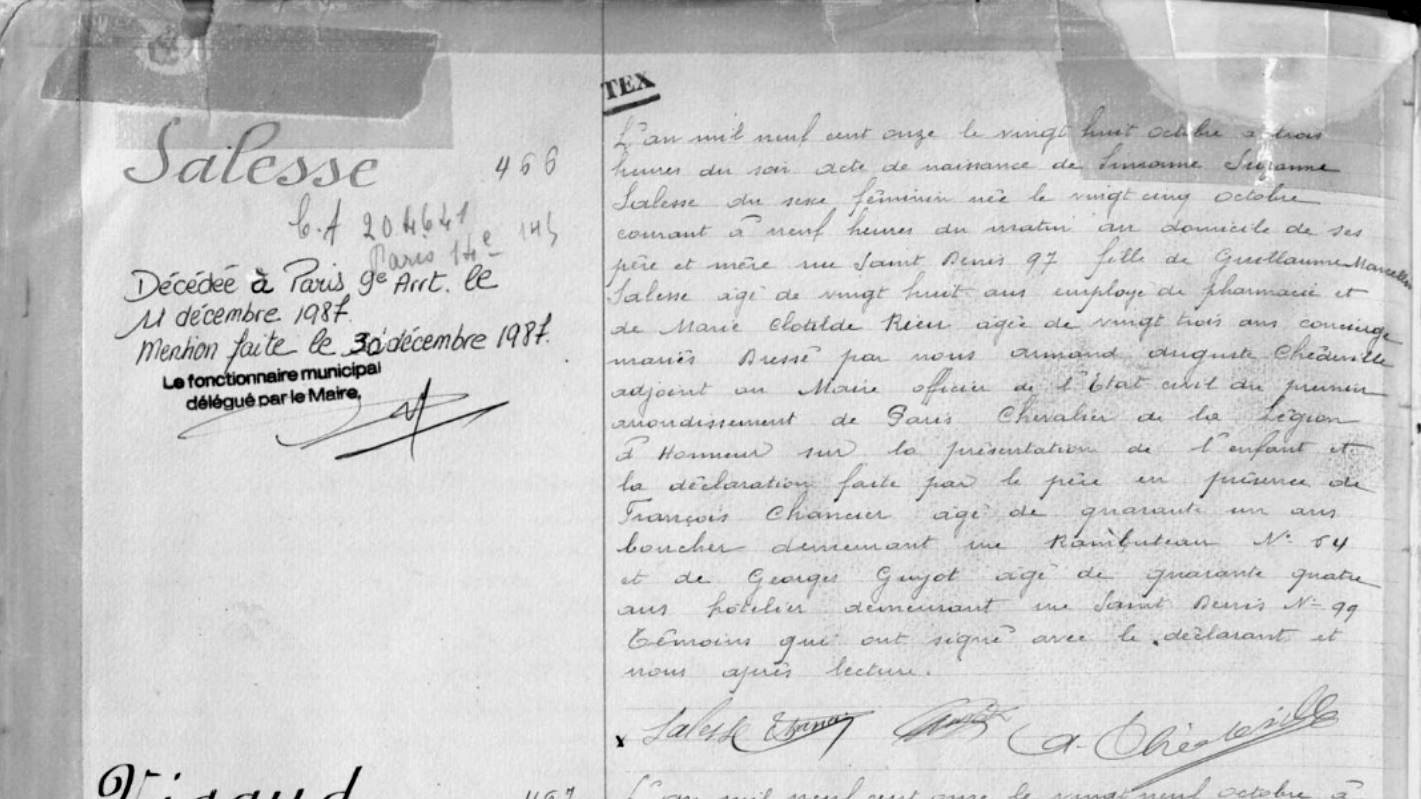 TEX
Salesse
466
C.A 204641
Paris 14e 145
Décédée à Paris 9e Arrt. le
11 décembre 1987.
Mention faite le 30 décembre 1987.
Le fonctionnaire municipal
délégué par le Maire,
L'an mil neuf cent onze le vingt huit octobre à trois
heures du soir acte de naissance de Simonne Suzanne
Salesse du sexe féminin née le vingt cinq octobre
courant à neuf heures du matin au domicile de ses
père et mère rue Saint Denis 97 fille de Guillaume Marcellin
Salesse âgé de vingt huit ans employé de pharmacie et
de Marie Clotilde Rieu âgée de vingt trois ans concierge
mariés Dressé par nous Armand Auguste Chédeville
adjoint au Maire officier de l'Etat civil du premier
arrondissement de Paris Chevalier de la Légion
d'Honneur sur la présentation de l'enfant et
la déclaration faite par le père en présence de
François Chancier âgé de quarante un ans
boucher demeurant rue Rambuteau No 64
et de Georges Guyot âgé de quarante quatre
ans hôtelier demeurant rue Saint Denis No 99
Témoins qui ont signé avec le déclarant et
nous après lecture.
Salesse A. Chédeville
467
L'an mil neuf cent onze le vingt neuf octobre à